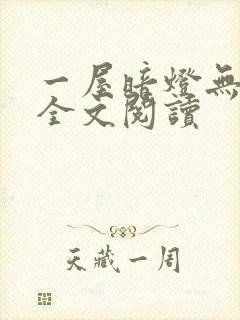 一屋暗燈無
全文閱讀
天藏一周